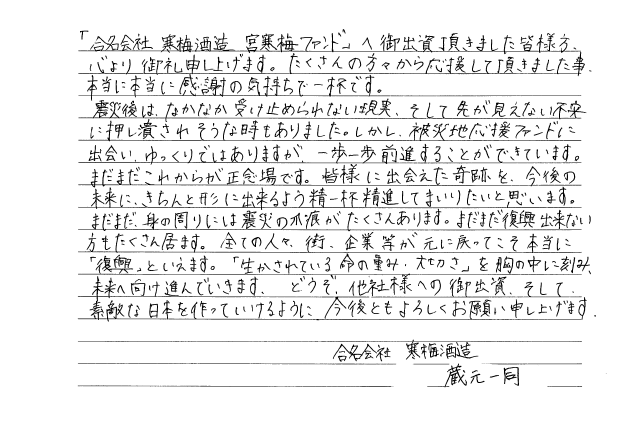 「合名会社 寒梅酒造 宮寒梅ファンド」へ御出資頂きました皆様方、
心より御礼申し上げます。たくさんの方々から応援して頂きました事、
本当に本当に感謝の気持ちで一杯です。
震災後は、なかなか受け止められない現実、そして先が見えない不安
に押し潰されそうな時もありました。しかし、被災地応援ファンドに
出会い、ゆっくりではありますが、一歩一歩前進することができています。
まだまだこれからが正念場です。皆様に出会えた奇跡を、今後の
未来に、きちんと形に出来るよう精一杯精進してまいりたいと思います。
まだまだ、身の周りには震災の爪痕がたくさんあります。まだまだ復興出来ない
方もたくさん居ます。全ての人々、街、企業等が元に戻ってこそ本当に
「復興」といえます。「生かされている命の重み・大切さ」を胸の中に刻み、
未来へ向け進んでいきます。どうぞ、他社様への御出資、そして、
素敵な日本を作っていけるように、今後ともよろしくお願い申し上げます。
合名会社 寒梅酒造
蔵元一同